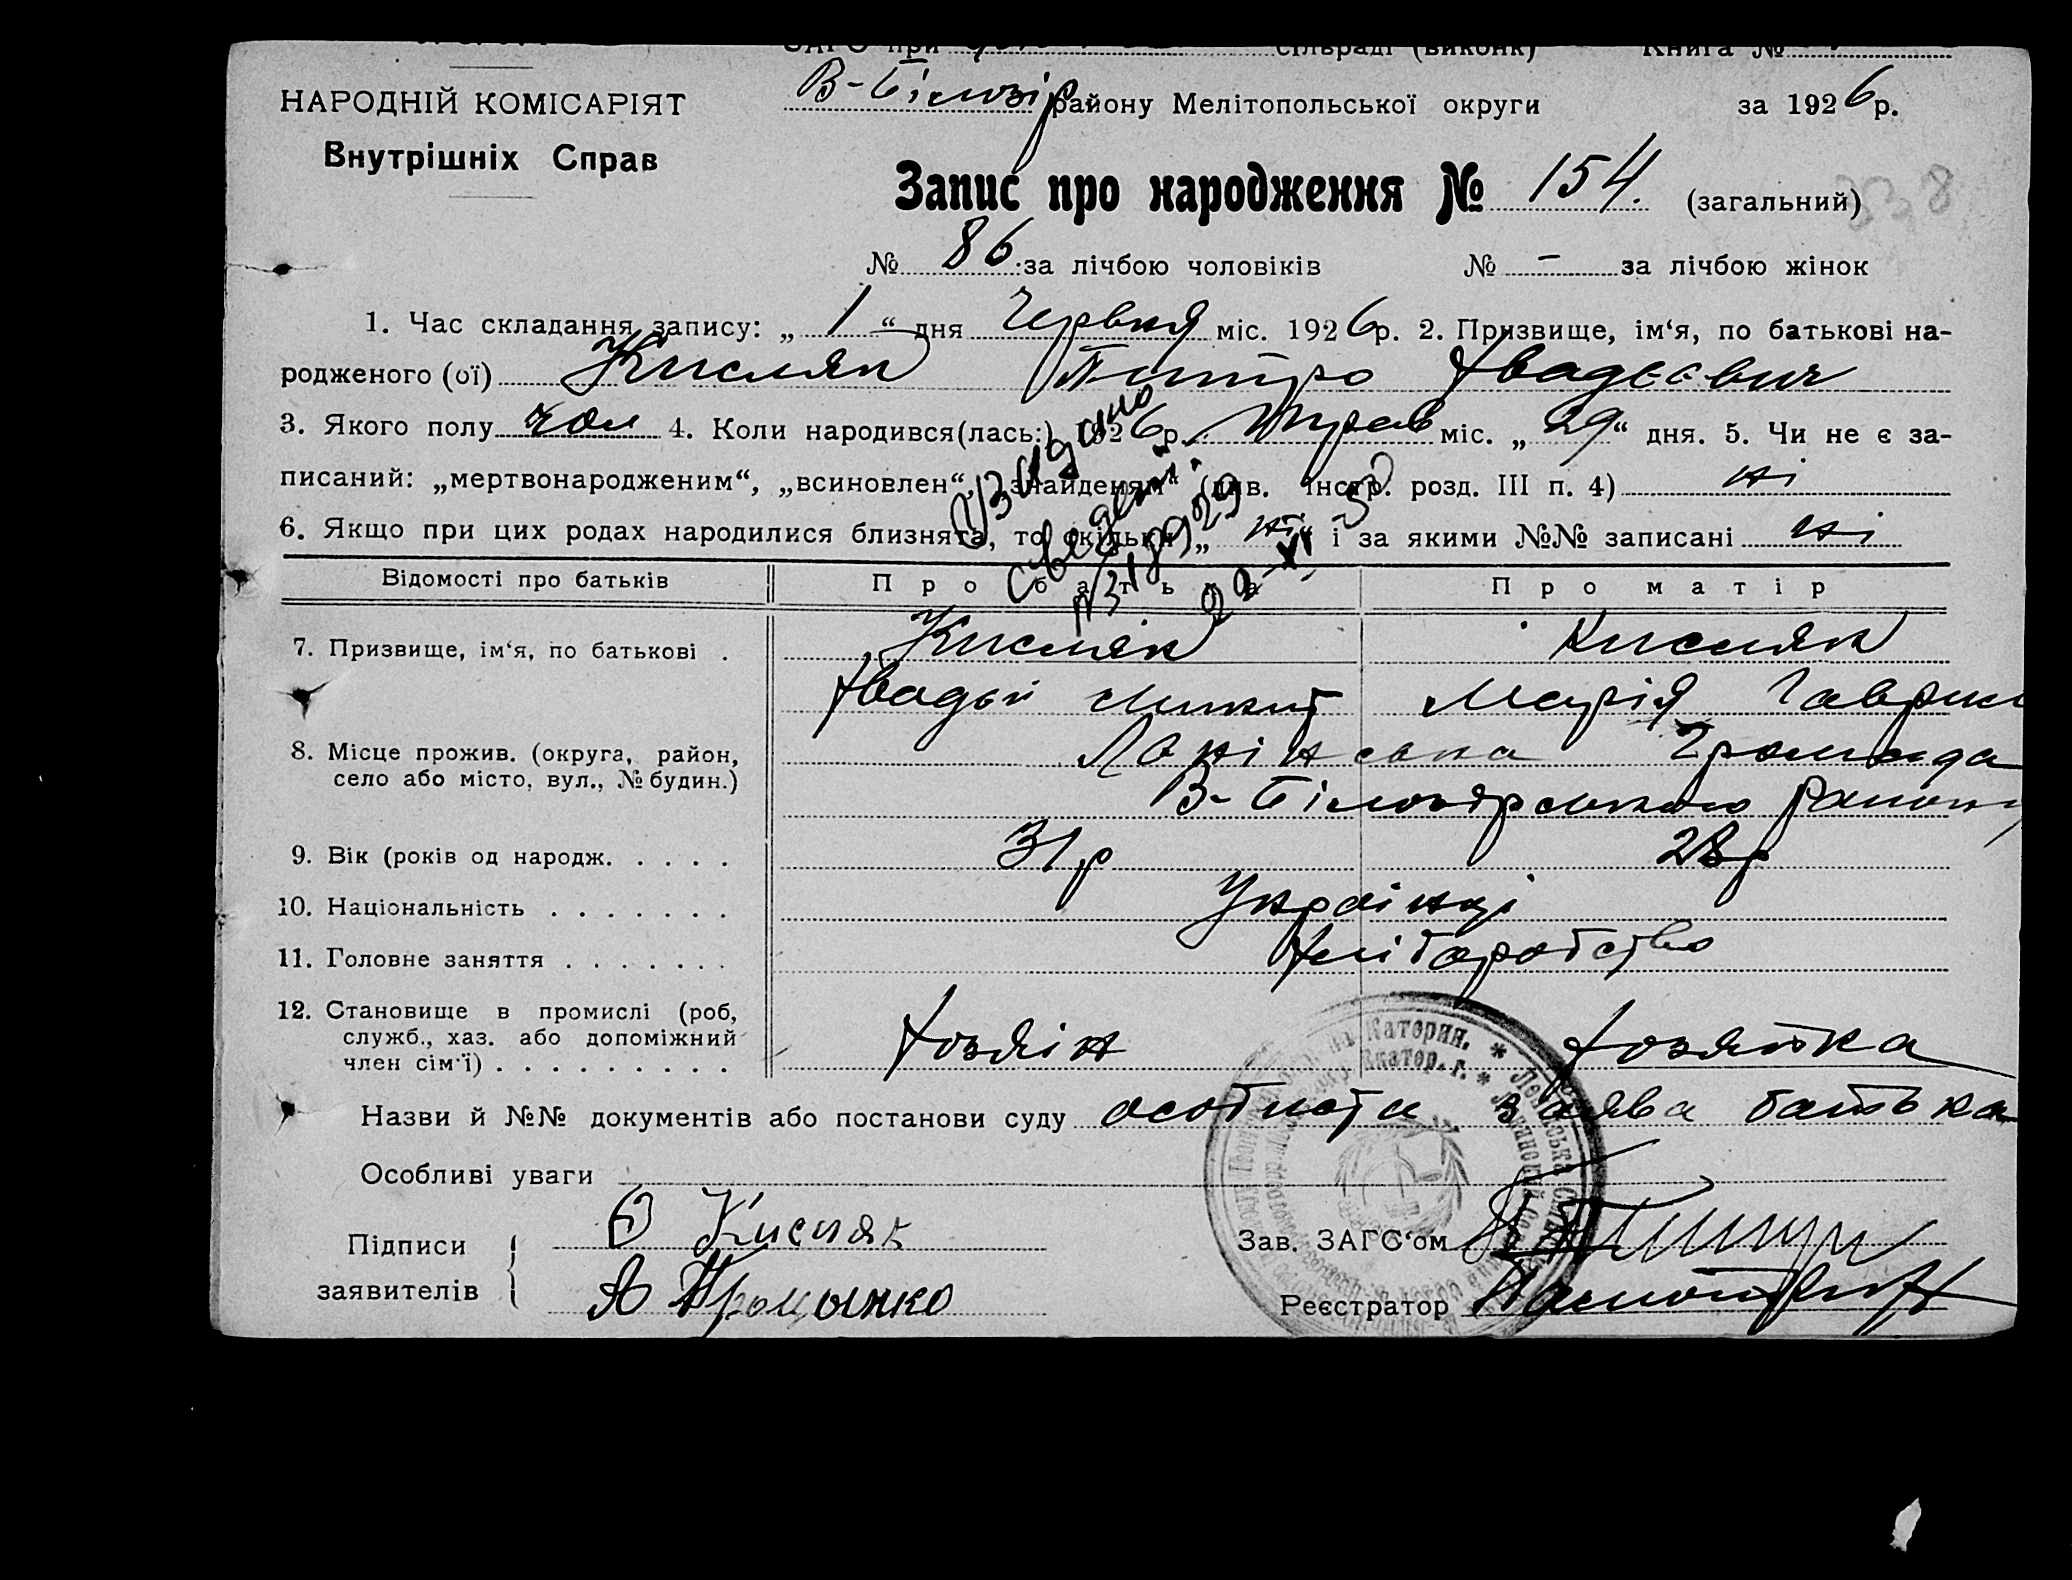 ЗАГС при сільраді (виконк) Книга №
НАРОДНІЙ КОМІСАРІЯТ
Внутрішніх Справ
В-Білозір району Мелітопольської округи за 1926 р.
Запис про народження № 154. (загальний) 338
№ 86 за лічбою чоловіків № - за лічбою жінок
1. Час складання запису: „ 1 “ дня Червня міс. 1926 р. 2. Призвище, ім‘я, по батькові на-
родженого (ої) Кисляк Питро Авадєєвич
3. Якого полу чол 4. Коли народився(лась:) 1926 р. Трав міс. „ 29 “ дня. 5. Чи не є за-
писаний: „мертвонародженим“, „всиновлен“, „знайденям“ (див. інстр. розд. III п. 4) ні
6. Якщо при цих родах народилися близнята, то скільки „ ні “ і за якими №№ записані ні
Видано
Відомості про батьків Про батька Про матір
7. Призвище, ім‘я, по батькові . Кисляк Кисляк
Авадій Микит Марія Гаврил
8. Місце прожив. (округа, район,
село або місто, вул., № будин.)
громада
В-Білозірського району
9. Вік (років од народж. . . . . 31 р 28 р
10. Національність . . . . . . . Українці
11. Головне заняття . . . . . . . хліборобство
12. Становище в промислі (роб,
служб., хаз. або допоміжний
член сім‘ї) . . . . . . . . . хозяін хозяйка
Назви й №№ документів або постанови суду особиста заява батька
Особливі уваги
Підписи
заявителів
Кисляк
А Троцынко
Зав. ЗАГС‘ом
Реєстратор